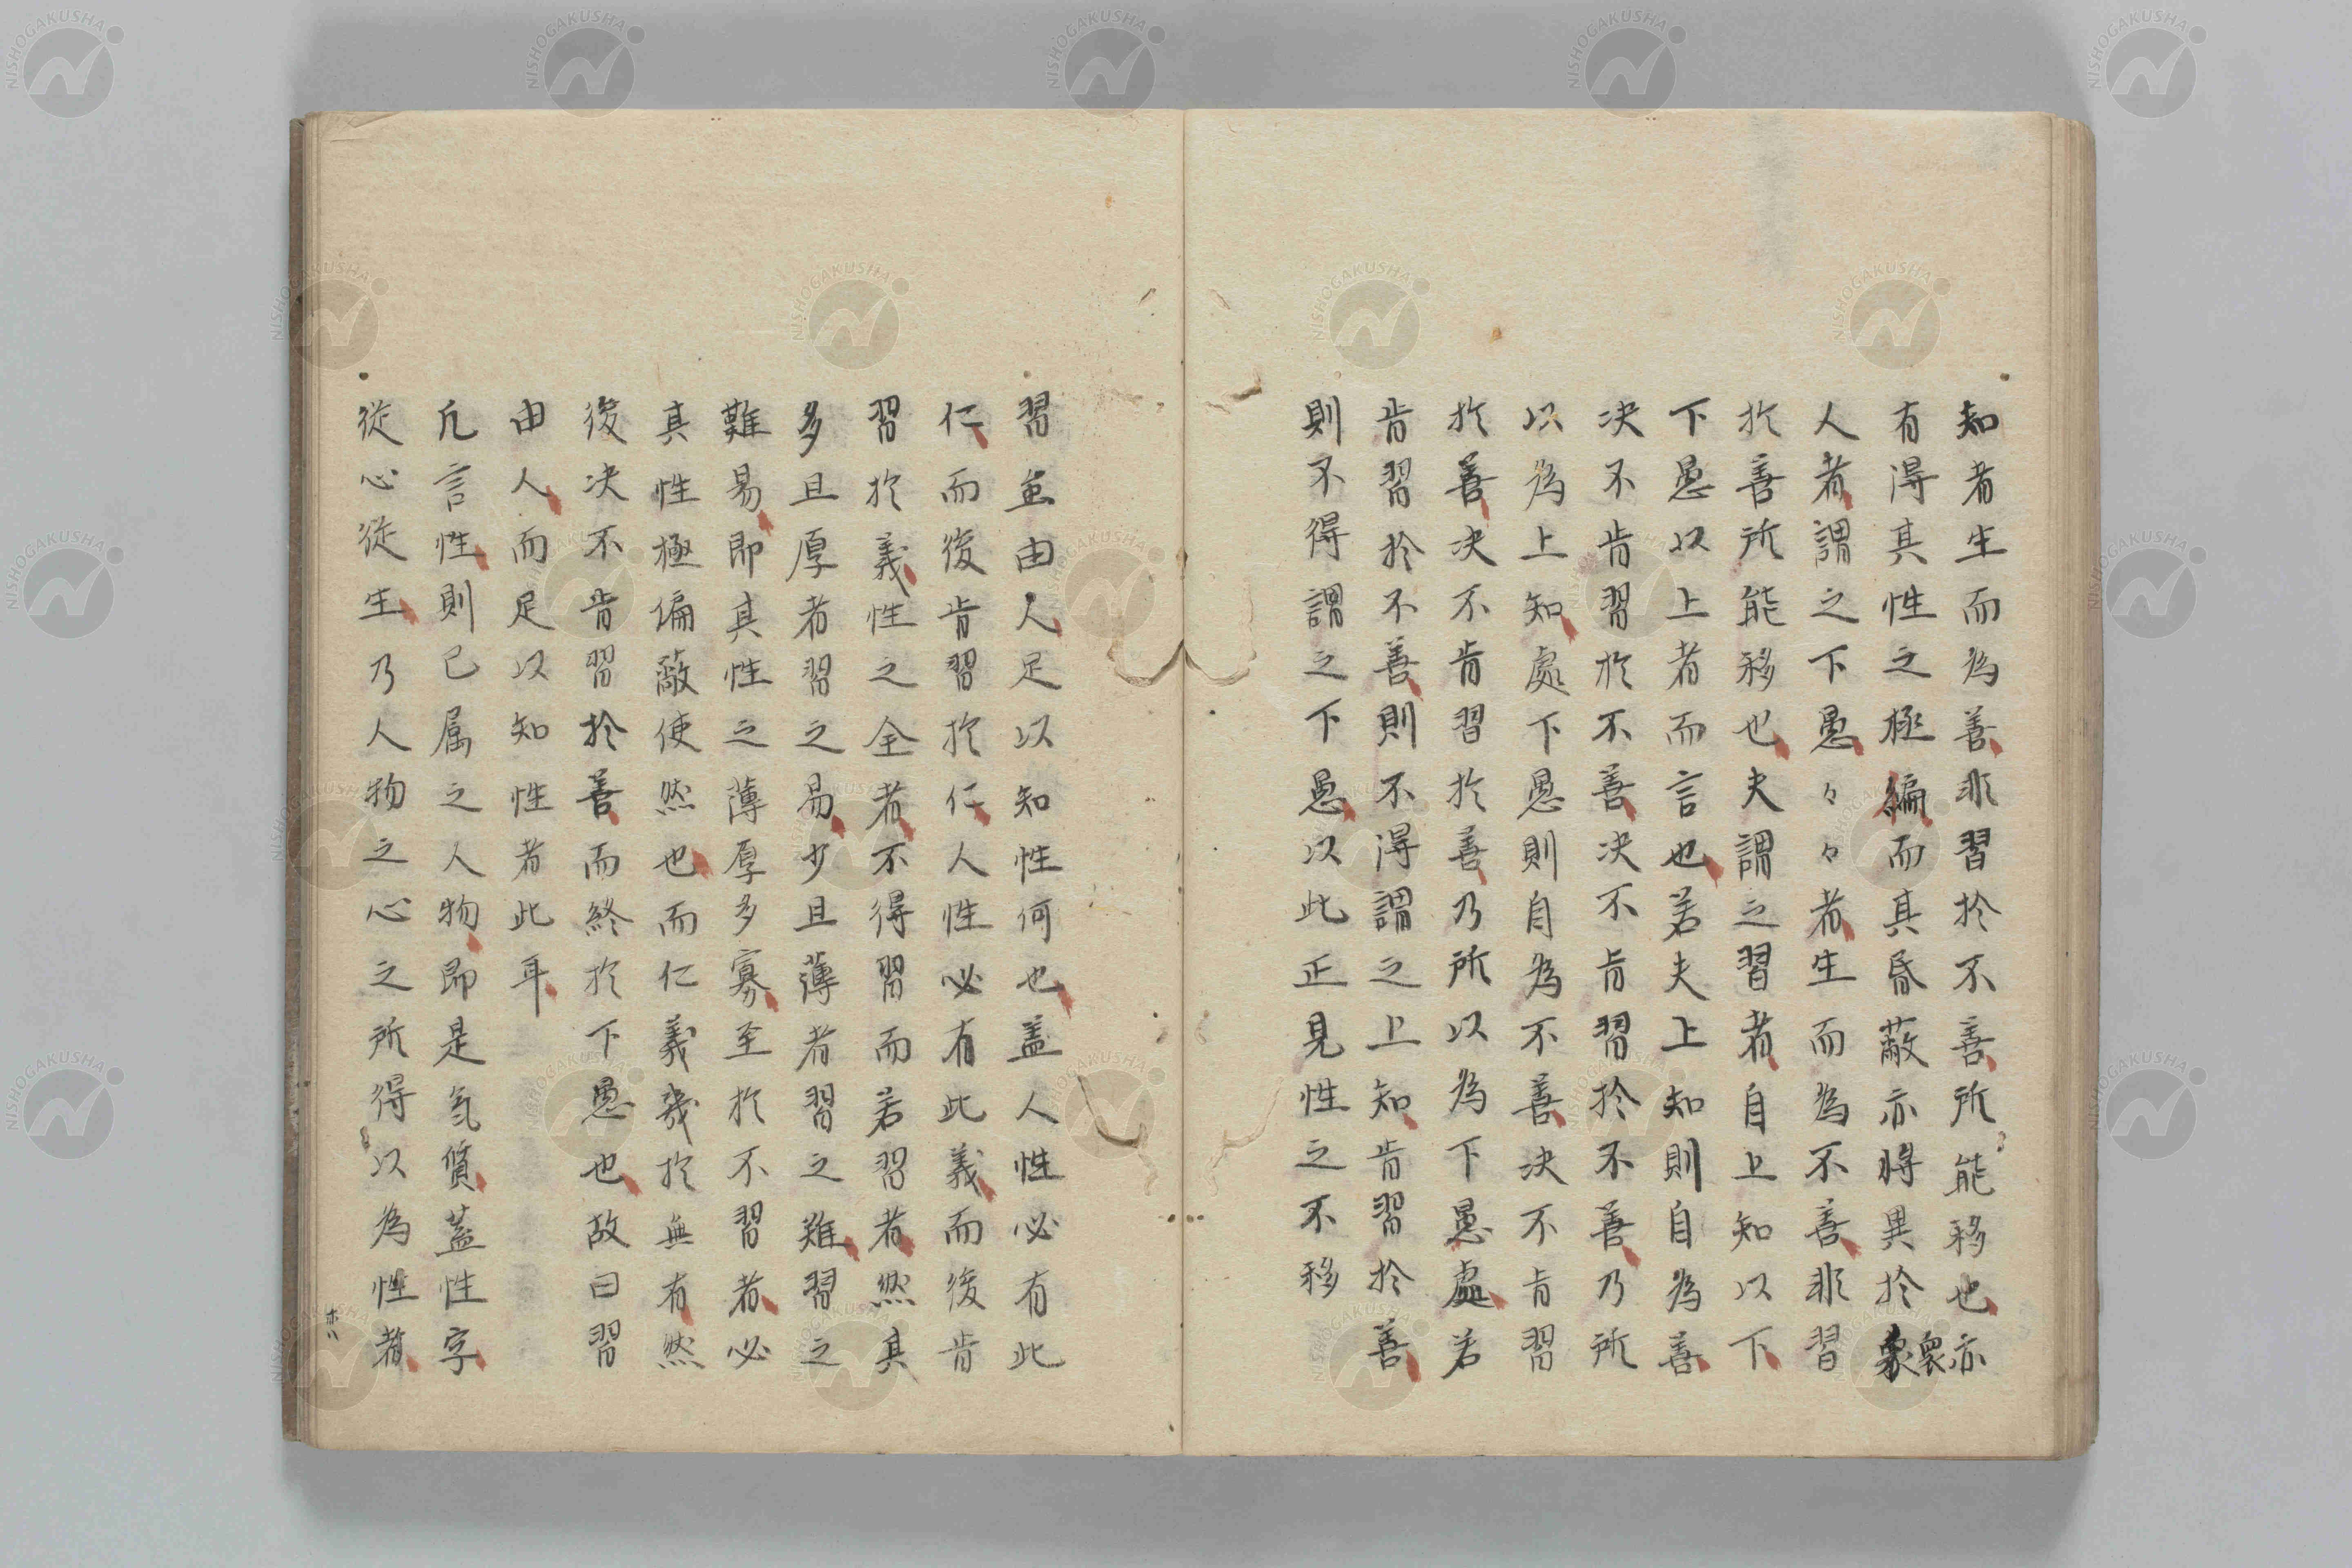 知者生而為善非習於不善所能移也亦
有得其性之極編而其昏蔽亦將異於衆
衆
人者謂之下愚々々者生而為不善非習
於善所能移也夫謂之習者自上知以下
下愚以上者而言也若夫上知則自為善
决不肯習於不善决不肯習於不善乃所
以為上知處下愚則自為不善决不肯習
於善决不肯習於善乃所以為下愚處若
肯習於不善則不得謂之上知肯習於善
則不得謂之下愚以此正見性之不移
習㒵由人足以知性何也盖人性必有此
仁而後肯習於仁人性必有此義而後肯
習於義性之全者不得習而若習者然其
多且厚者習之易少且薄者習之難習之
難易即其性之薄厚多寡至於不習者必
其性極偏蔽使然也而仁義幾於無有然
後决不肯習於善而終於下愚也故曰習
由人而足以知性者此耳
凡言性則已属之人物即是氣質盖性字
從心從生乃人物之心之所得以為性者
NISHOGAKUSHA